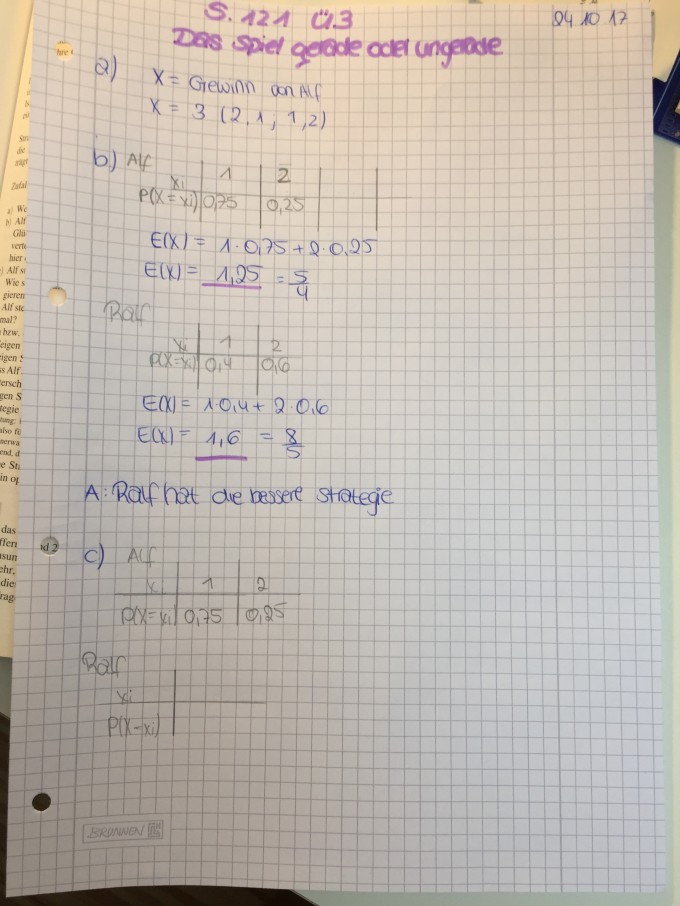 S. 121 Ü.3
04 10 17
Das Spiel gerade oder ungerade
a) X = Gewinn von Alf
X = 3 (2,1, 1,2)
b.) Alf
xi 1 2
P(X=xi) 0,75 0,25
E(X) = 1·0,75+2·0,25
E(X) = 1,25 = 5/4
Ralf
xi 1 2
P(X=xi) 0,4 0,6
E(X) = 1·0,4+ 2·0,6
E(X) = 1,6 = 8/5
A: Ralf hat die bessere Strategie
c) Alf
xi 1 2
P(X=xi) 0,75 0,25
Ralf
xi
P(X-xi)
BRUNNEN